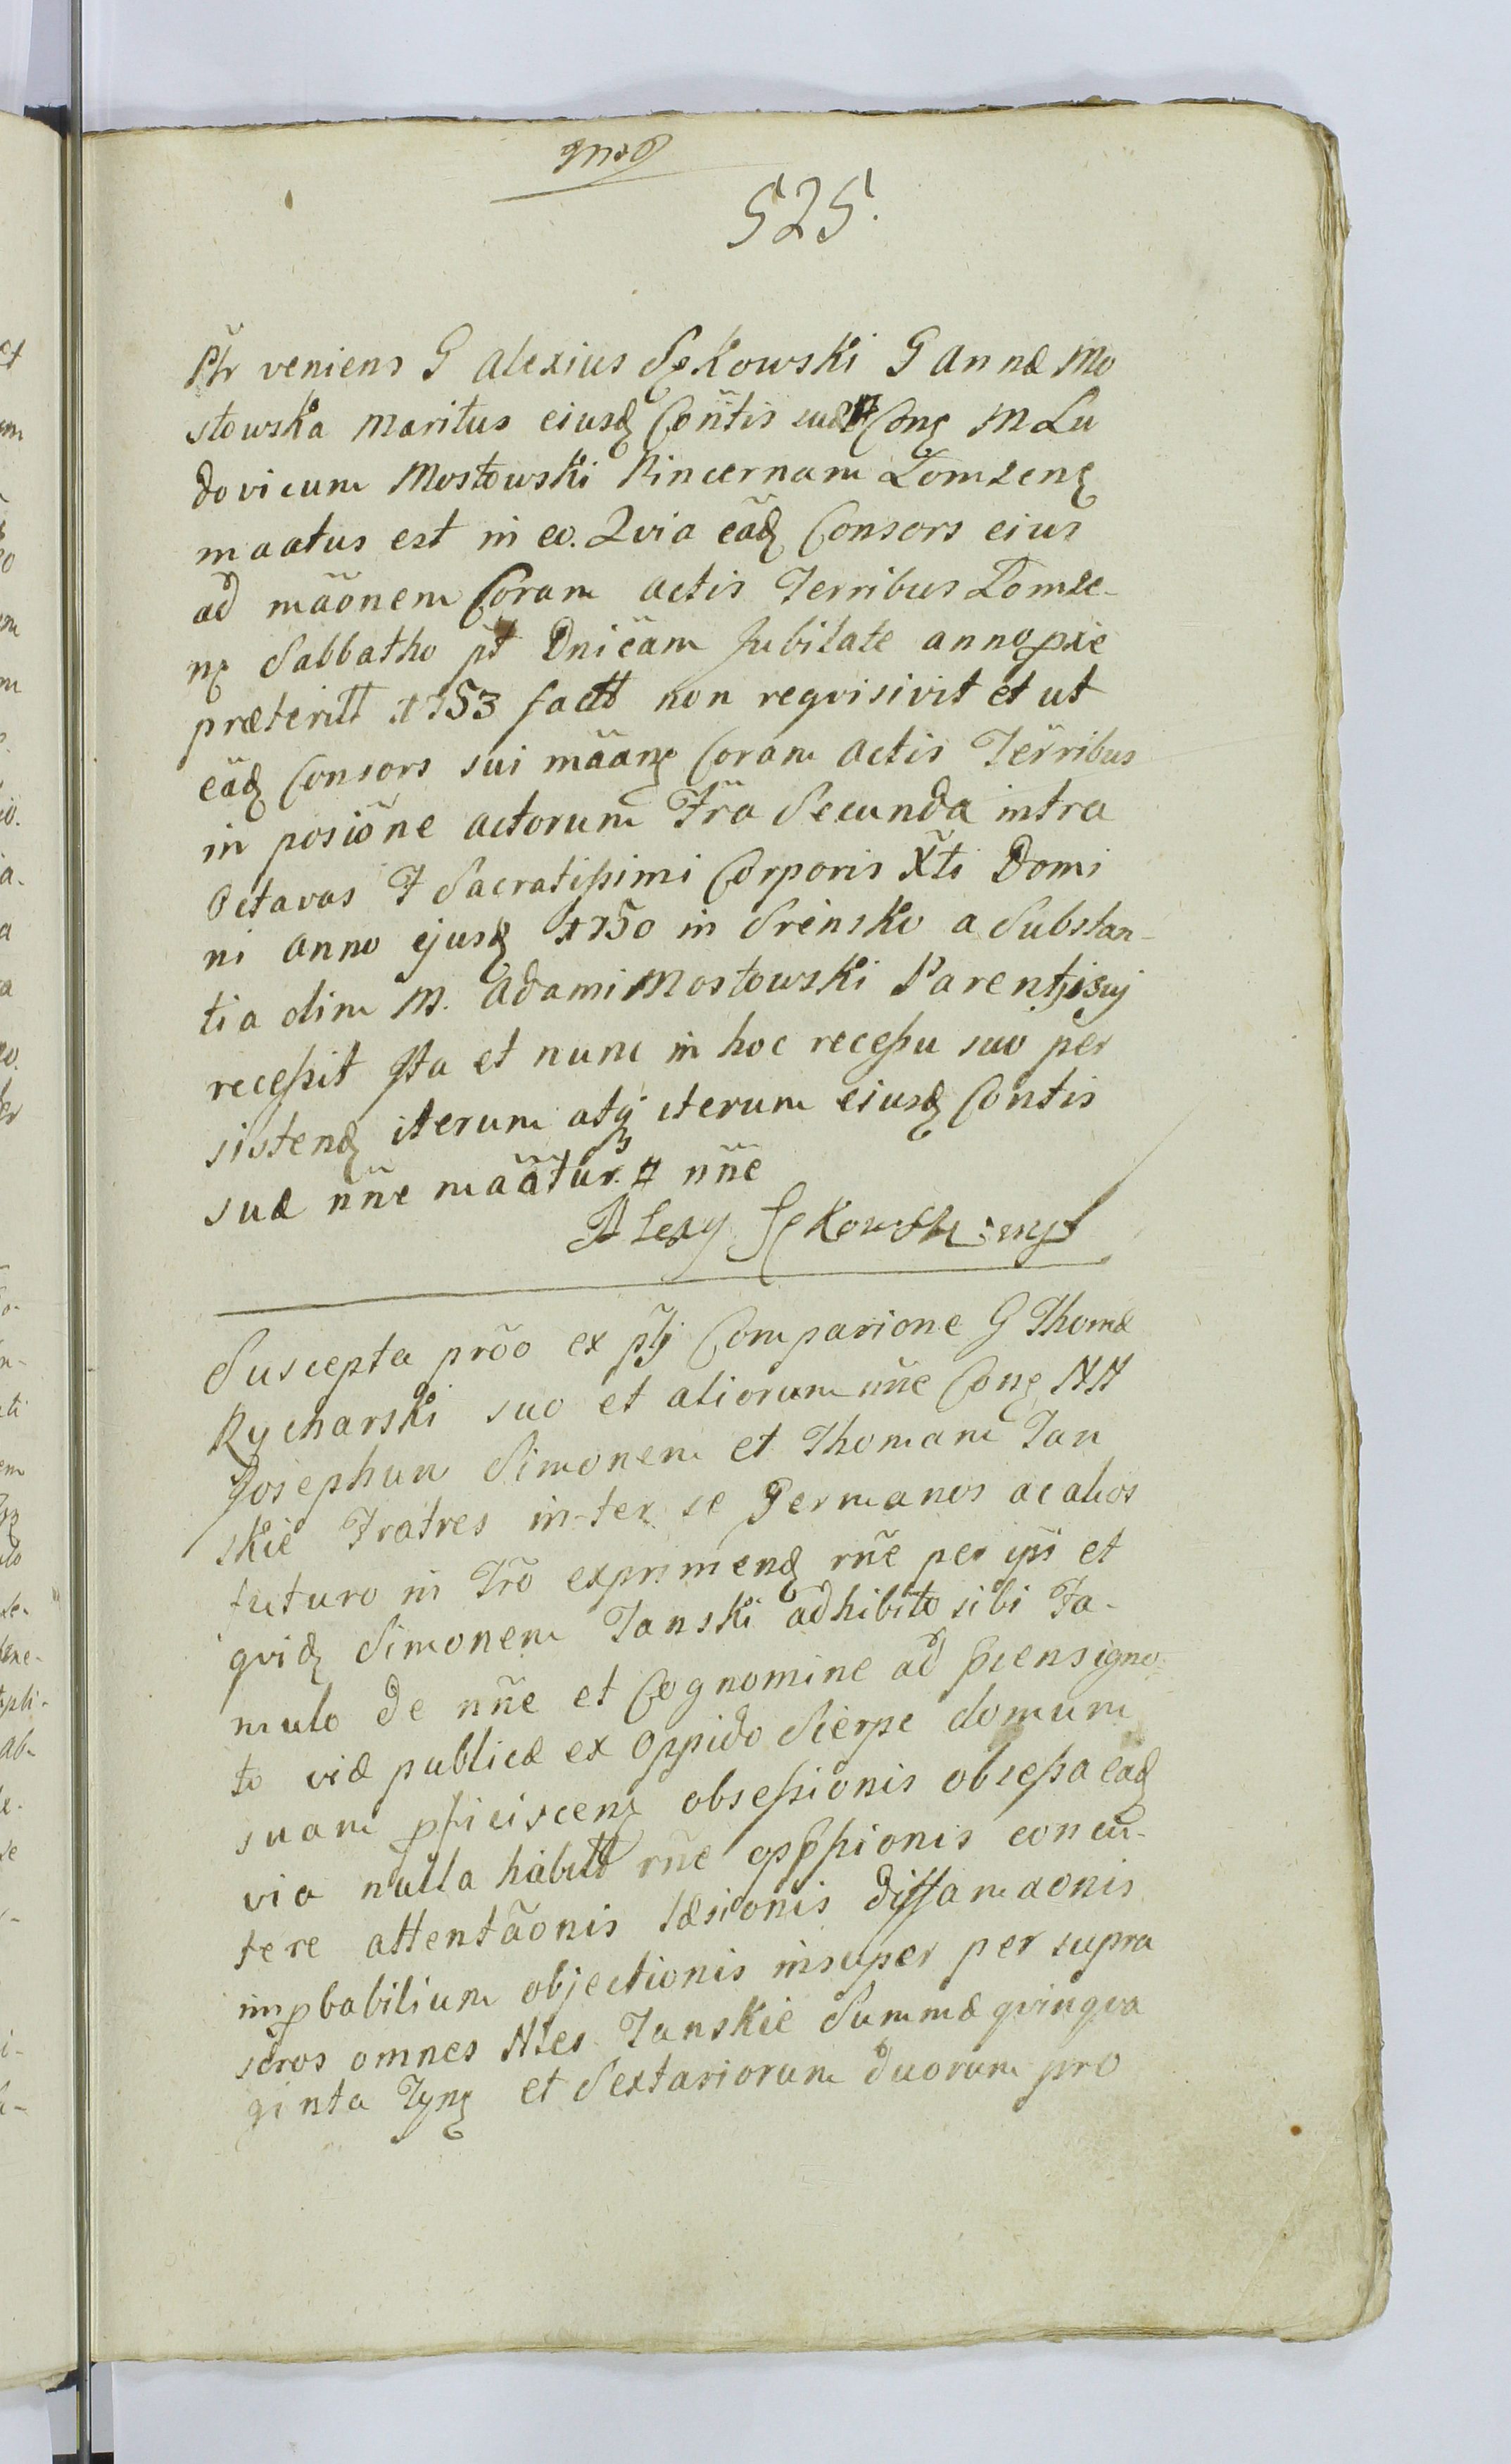 525.
Pſr veniens G Alexius Sękowski G Annæ Mo
stowska Maritus eiusq Con̄tis suæ # Conę M Lu
dovicum Mostowski Pincernam Lomzenę
maatus est in eo. Qvia eād Consors eius
ad māonem Coram actis Terribus Lomze-
nę Sabbatho pt Dnicam Jubilate anno pxie
præteritt 1753 factt non reqvisivit et ut
eād Consors sui māanę Coram Actis Terribus
in posiōne actorum Fra Secunda intra
Octavas F Sacratissimi Corporis Xti Domi
ni Anno ejusd 1750 in Srensko a Substan-
tia olim M. Adami Mostowski Parentis suj
recessit Ita et nunc in hoc recessu suo per
sistend iterum atq iterum eiusd Contis
suæ nn̄e māatur. # nn̄e
Alexy Sękowski mp
Suscepta prōo ex ptj Comparione G Thomæ
Rycharski suo et aliorum nn̄e Conę NN
Josephum Simonem et Thomam Tan
skie Fratres inter se Germanos ac alios
futuro in Trō exprimend rn̄e per ipsi et
qvid Simonem Tanski adhibito sibi Fa-
mulo de nn̄e et Cognomine ad priens igno
to viæ publicæ ex Oppido Sierpc domum
suam pficiscenę obsessionis obsessa eād
via nulla habitt rn̄e oppssionis concu-
tere attentāonis læsionis diffamaonis
impbabilium objectionis insuper per supra
scros omnes NLes Tanskie Summæ qvinqva
ginta Tynę et Sextariorum duorum pro